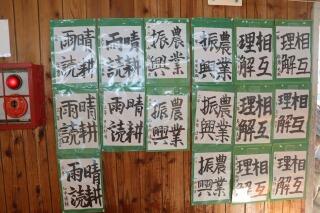 相互
理解
相互
理解
農業
振興
農業
振興
晴耕
雨読
晴耕
雨読
相互
理解
相互
理解
農業
振興
農業
振興
晴耕
雨読
晴耕
雨読
相互
理解
相互
理解
農業
振興
晴耕
雨読